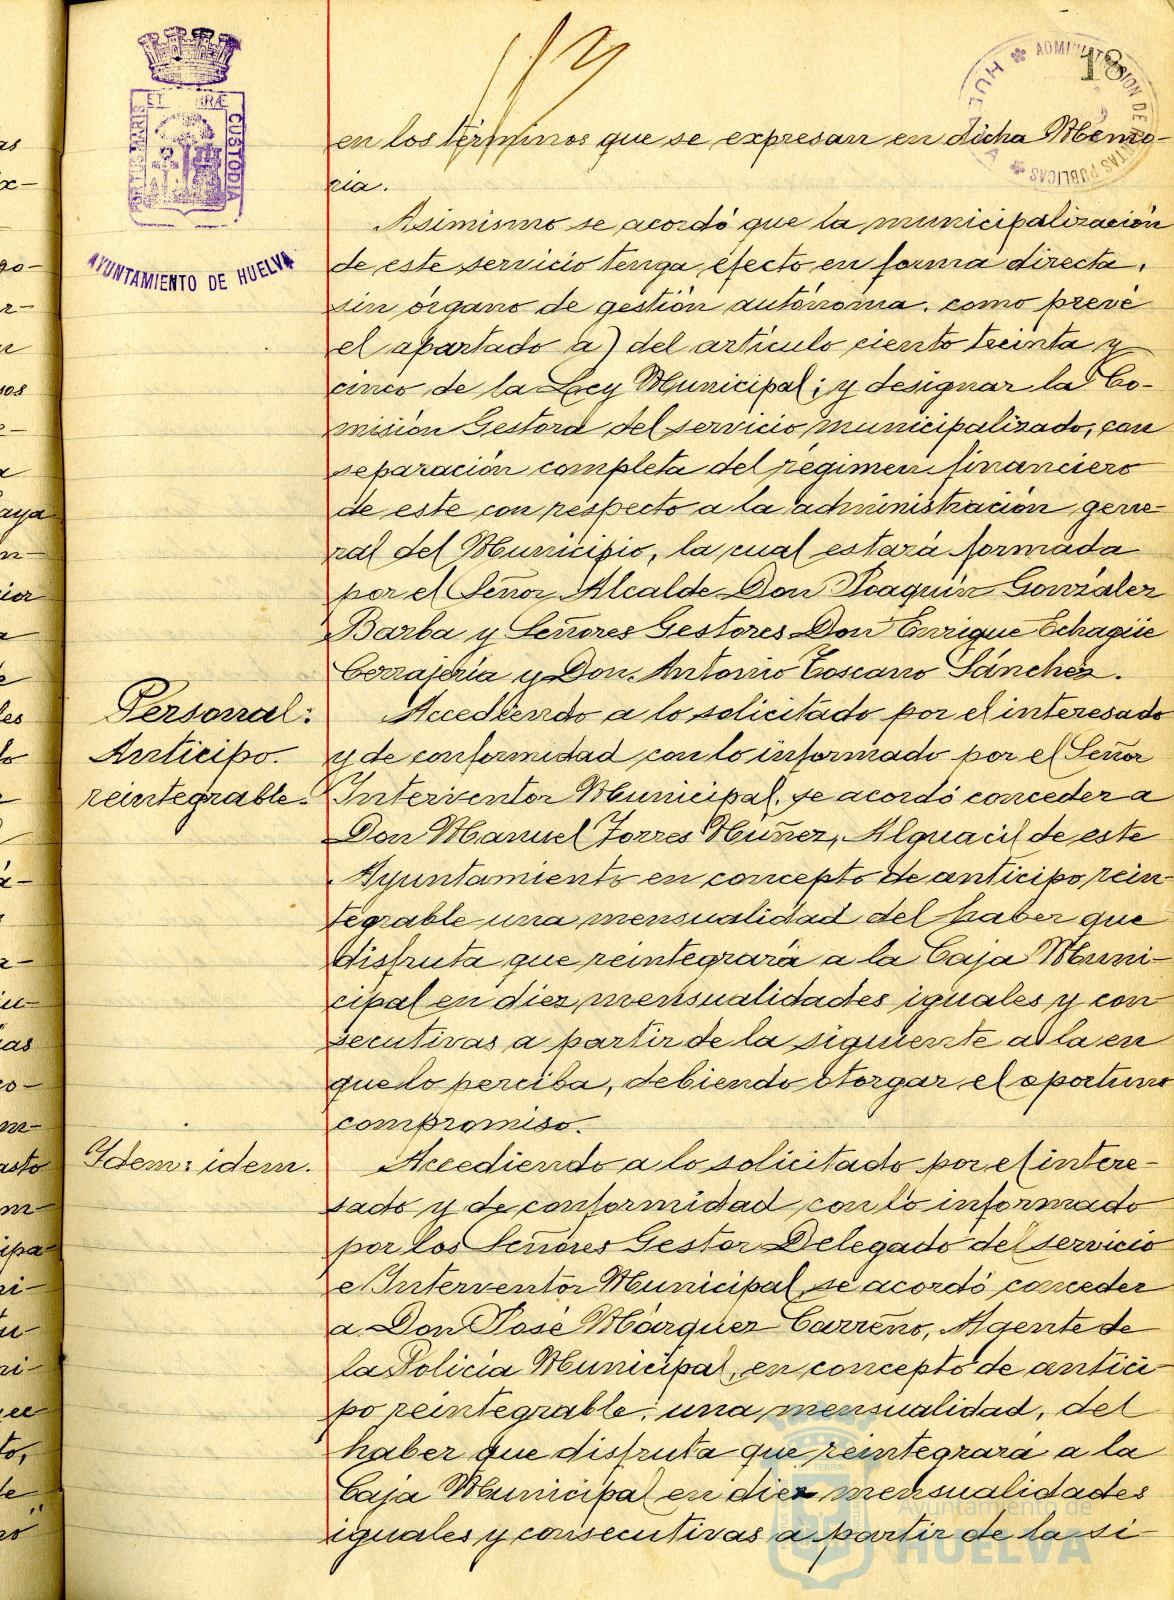 18
AYUNTAMIENTO DE HUELVA
en los términos que se expresan en dicha Memo-
ria.
Asimismo se acordó que la municipalización
de este servicio tenga efecto en forma directa,
sin órgano de gestión autónoma, como prevé
el apartado a) del artículo ciento treinta y
cinco de la Ley Municipal; y designar la Co-
misión Gestora del servicio municipalizado, con
separación completa del régimen financiero
de este con respecto a la administración gene-
ral del Municipio, la cual estará formada
por el Señor Alcalde Don Joaquín González
Barba y Señores Gestores Don Enrique Echagüe
Cerrajería y Don Antonio Toscano Sánchez.
Personal:
Anticipo
reintegrable.
Accediendo a lo solicitado por el interesado
y de conformidad con lo informado por el Señor
Interventor Municipal, se acordó conceder a
Don Manuel Torres Nuñez, Alguacil de este
Ayuntamiento en concepto de anticipo rein-
tegrable una mensualidad del haber que
disfruta que reintegrará a la Caja Muni-
cipal en diez mensualidades iguales y con-
secutivas a partir de la siguiente a la en
que lo perciba, debiendo otorgar el oportuno
compromiso.
Idem: idem.
Accediendo a lo solicitado por el intere-
sado y de conformidad con lo informado
por los Señores Gestor Delegado del servicio
e Interventor Municipal, se acordó conceder
a Don José Márquez Carreño, Agente de
la Policía Municipal, en concepto de antici-
po reintegrable, una mensualidad, del
haber que disfruta que reintegrará a la
Caja Municipal en diez mensualidades
iguales y consecutivas a partir de la si-
Ayuntamiento de
HUELVA